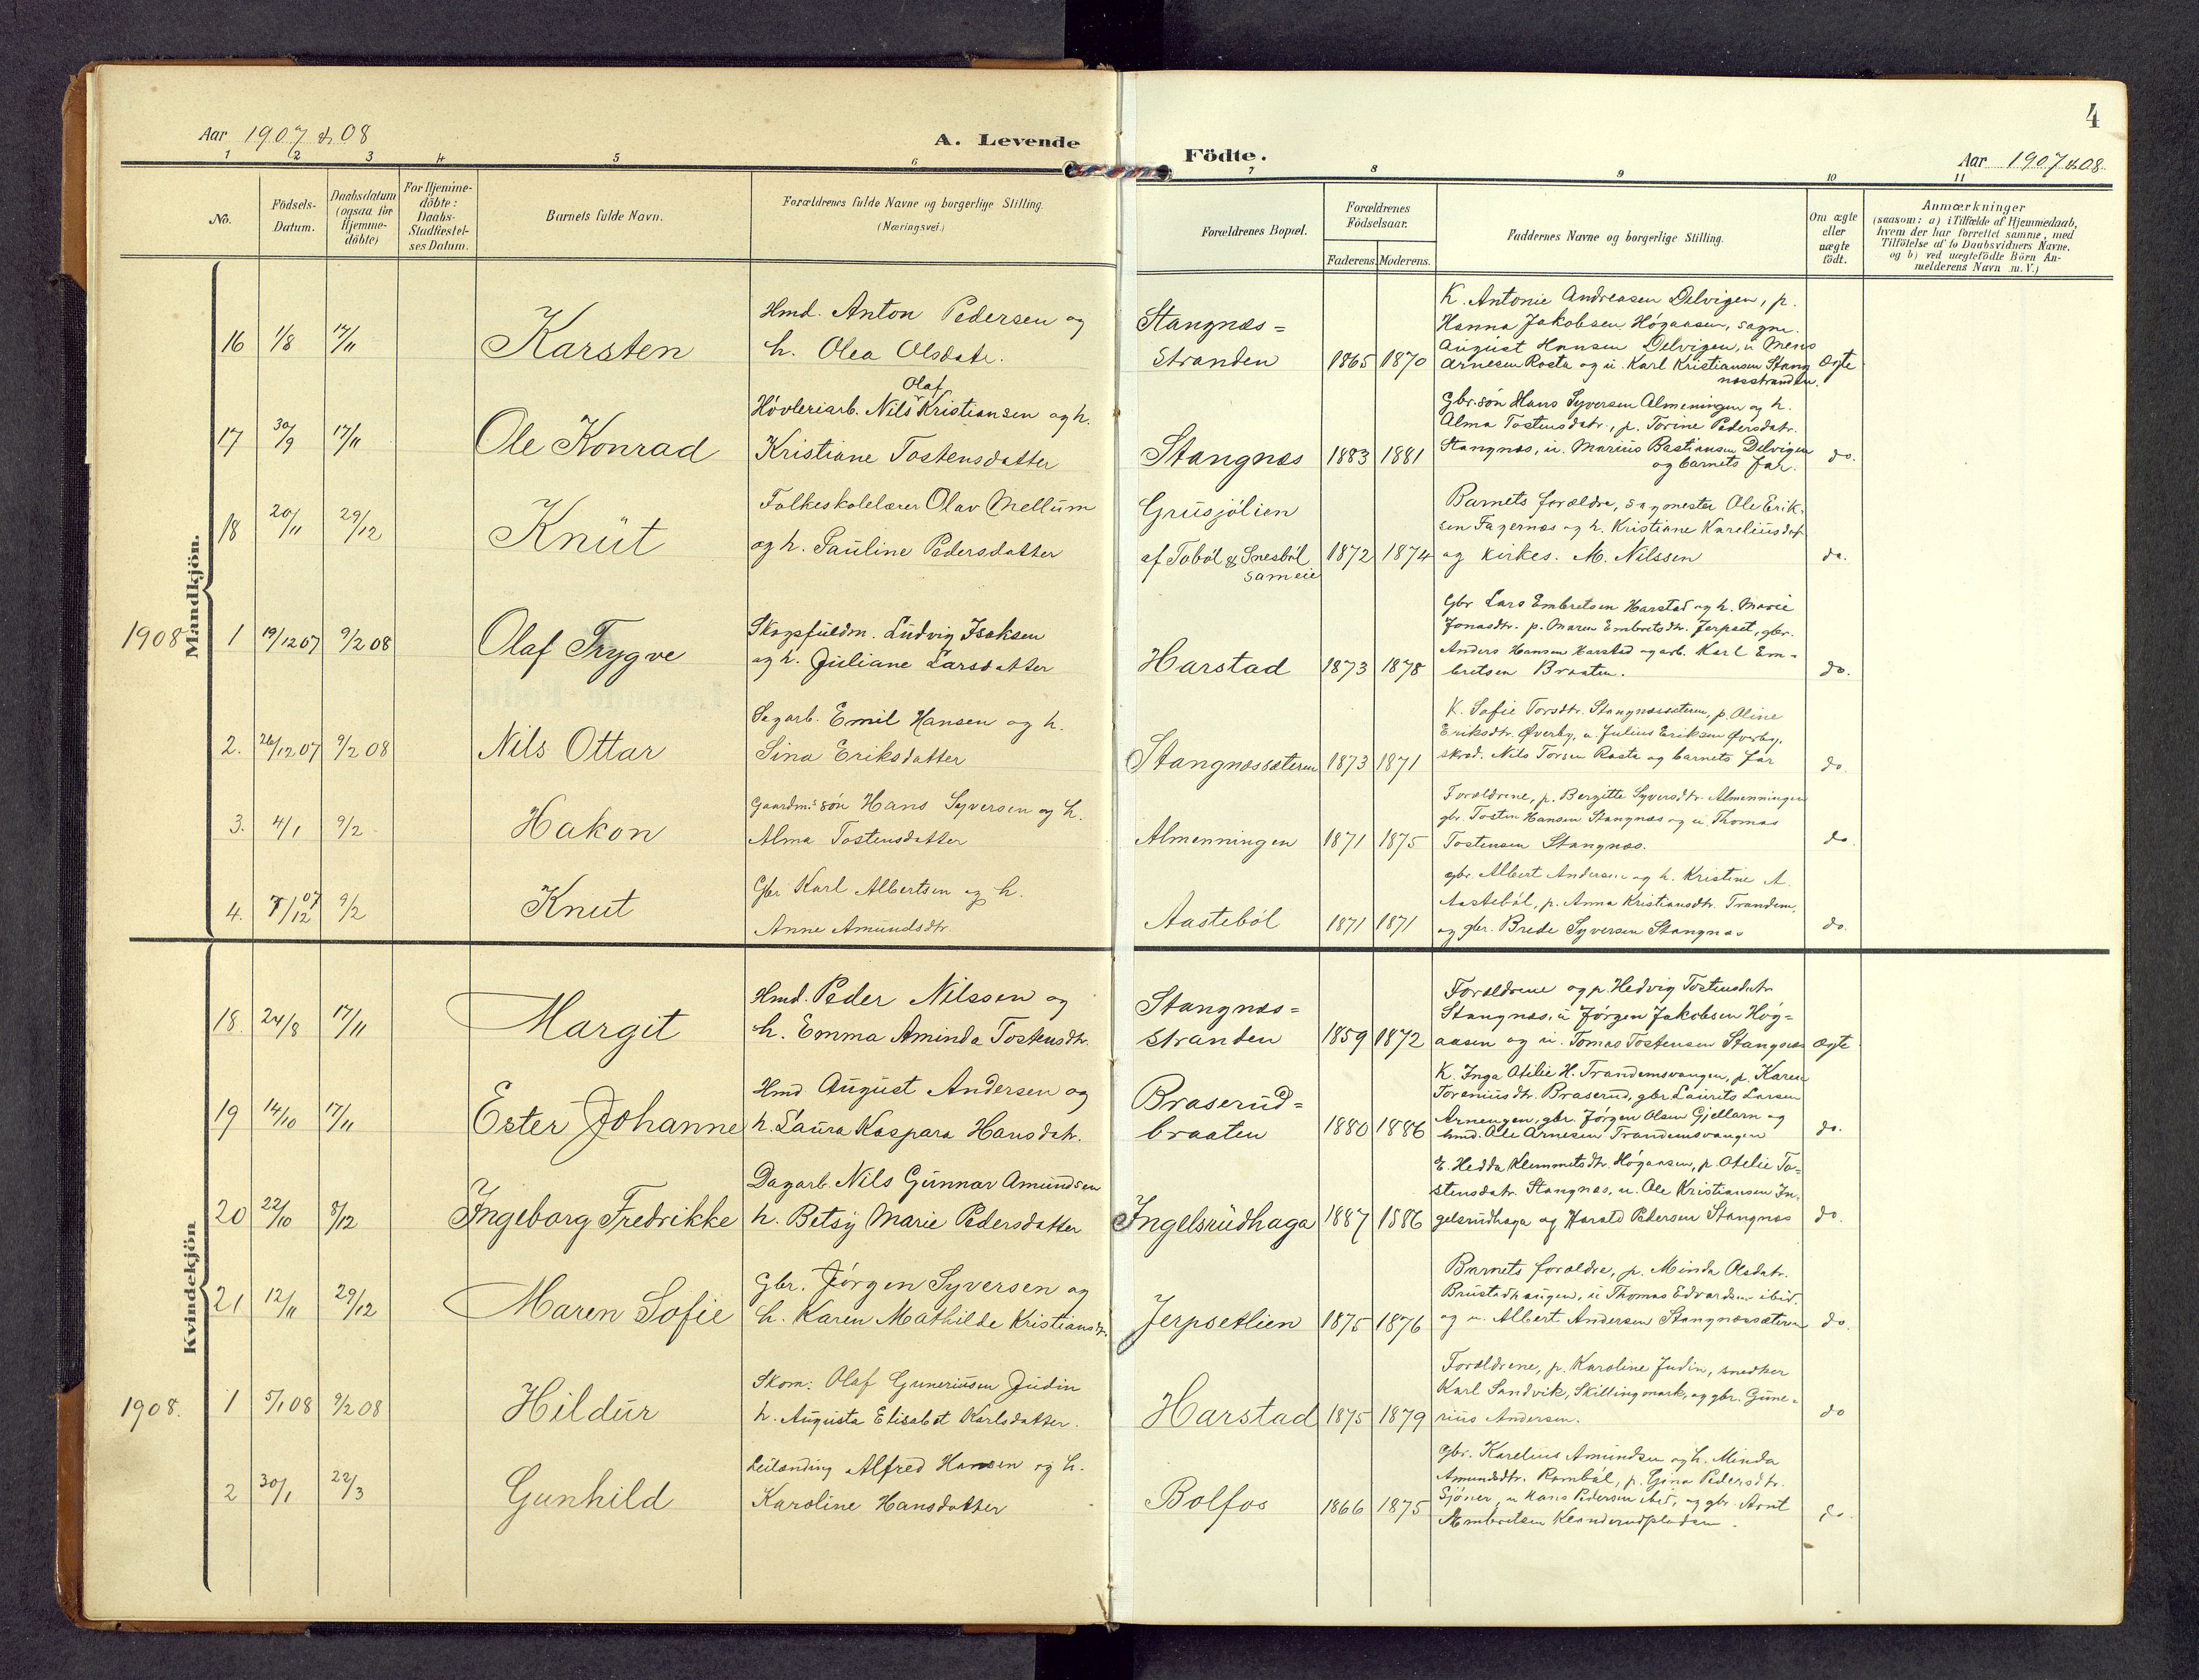 4
Aar 1907 & 08
A. Levende
Födte.
Aar 1907 & 08.
1 2 3 4 5 6 7 8 9 10 11
No.
Födsels-
Datum.
Daabsdatum
(ogsaa for
Hjemme-
döbte)
For Hjemme-
döbte:
Daabs-
Stadfæstel-
ses Datum.
Barnets fulde Navn.
Forældrenes fulde Navne og borgerlige Stilling.
(Næringsvei.)
Forældrenes Bopæl.
Forældrenes
Födselsaar.
Faderens. Moderens.
Faddernes Navne og borgerlige Stilling.
Om ægte
eller
uægte
födt.
Anmærkninger
(saasom: a) i Tilfælde af Hjemmedaab,
hvem der har forrettet samme, med
Tilföielse af to Daabsvidners Navne,
og b) ved uægtefödte Börn An-
melderens Navn m. V.)
Mandkjön.
16 1/8 17/11 Karsten
Hmd. Anton Pedersen og
h. Olea Olsdatr.
Stangnæs=
stranden
1865 1870
K. Antonie Andreasen Delvigen, p.
Hanna Jakobsen Högaasen, sagm.
August Hansen Delvigen, u. Mens
Arnesen Rosta og u. Karl Kristiansen Stang
næsstranden.
Ægte
17 30/9 17/11 Ole Konrad
Olaf
Hövleriarb. Nils Kristiansen og h.
Kristiane Tostensdatter
Stangnæs
1883 1881
Gbr. sön Hans Syversen Almeningen og h.
Alma Tostensdatr., p. Torine Pedersdatr.
Stangnæs, u. Marius Bastiansen Delvigen
og barnets far.
do.
18 20/11 29/12 Knut
Folkeskolelærer Olav Mellum
og h. Pauline Pedersdatter
Grusjölien
af Toböl & Snesböl
sameie
1872 1874
Barnets forældre, sagmester Ole Erik-
sen Fagernæs og h. Kristiane Kareliusdat
og kirkes. M. Nilssen
do.
1908 1 19/12 07 9/2 08 Olaf Trygve
Skogsfuldm. Ludvig Isaksen
og h. Juliane Larsdatter
Harstad
1873 1878
Gbr Lars Embretsen Harstad og h. Marie
Jonasdtr. p. Maren Embretsdtr. Jerpset, gbr.
Anders Hansen Harstad og arb. Karl Em-
bretsen Braaten.
do.
2. 26/12 07 9/2 08 Nils Ottar
Sagarb. Emil Hansen og h.
Sina Eriksdatter
Stangnæssæteren
1873 1871
K. Sofie Torsdtr. Stangnæssæteren, p. Oline
Eriksdtr. Øverby, u. Julius Eriksen Øverby,
skræd. Nils Torsen Rasta og barnets far
do
3. 4/1 9/2 Hakon
Gaardm.s sön Hans Syversen og h.
Alma Tostensdatter
Almenningen
1871 1875
Forældrene, p. Bergitte Syversdtr. Almenningen
gbr. Tosten Hansen Stangnæs og u. Thomas
Tostensen Stangnæs.
do
4. 7/12 07 9/2 Knut
Gbr Karl Albertsen og h.
Anne Amundsdtr
Aasteböl
1871 1871
gbr. Albert Andersen og h. Kristine A.
Aasteböl, p. Anna Kristiansdtr. Trandem,
og gbr. Brede Syversen Stangnæs
do.
Kvindekjön
18. 24/8 17/11 Margit
Hmd. Peder Nilssen og
h. Emma Aminda Tostensdtr.
Stangnæs=
stranden
1859 1872
Forældrene og p. Hedvig Tostensdatr
Stangnæs, u Jörgen Jakobsen Hög=
aasen og u. Tomas Tostensen Stangnæs
Ægte
19 14/10 17/11 Ester Johanne
Hmd August Andersen og
h. Laura Kaspara Hansdatr.
Braserud=
braaten
1880 1886
K. Inga Otilie H. Trandemsvangen, p. Karen
Toreniusdtr. Braserud, gbr Laurits Larsen
Arnengen, gbr. Jörgen Olsen Gjellarn og
hmd. Ole Arnesen Trandemsvangen
do.
20 22/10 8/12 Ingeborg Fredrikke
Dagarb. Nils Gunnar Amundsen
h. Betsy Marie Pedersdatter
Ingelsrudhaga
1887 1886
E. Hedda Klemmetsdtr. Högaasen, p. Otelie To=
stensdatr. Stangnæs, u. Ole Kristiansen In-
gelsrudhaga og Harald Pedersen Stangnæs
do.
21 12/11 29/12 Maren Sofie
Gbr. Jörgen Syversen og
h. Karen Mathilde Kristiansdr.
Jerpsetlien
1875 1876
Barnets forældre, p. Minda Olsdatr.
Brustadhaugen, u Thomas Edvardsen ibid.
og u. Albert Andersen Stangnæssæteren
do.
1908. 1 5/1 08 9/2 08 Hildur
Skom: Olaf Guneriusen Judin
h. Augusta Elisabet Karlsdatter.
Harstad
1875 1879
Forældrene, p. Karoline Judin, snedker
Karl Sandvik, Skillingmark, og gbr. Gune-
rius Andersen.
do
2 30/1 22/3 Gunhild
Leilænding Alfred Hansen og h.
Karoline Hansdatter
Bolfos
1866 1875
gbr. Karelius Amundsen og h. Minda
Amundsdtr. Ramböl, p. Gina Pedersdtr.
Sjöner, u Hans Pedersen ibid, og gbr. Arnt
Embretsen Klanderudpladsen.
do.